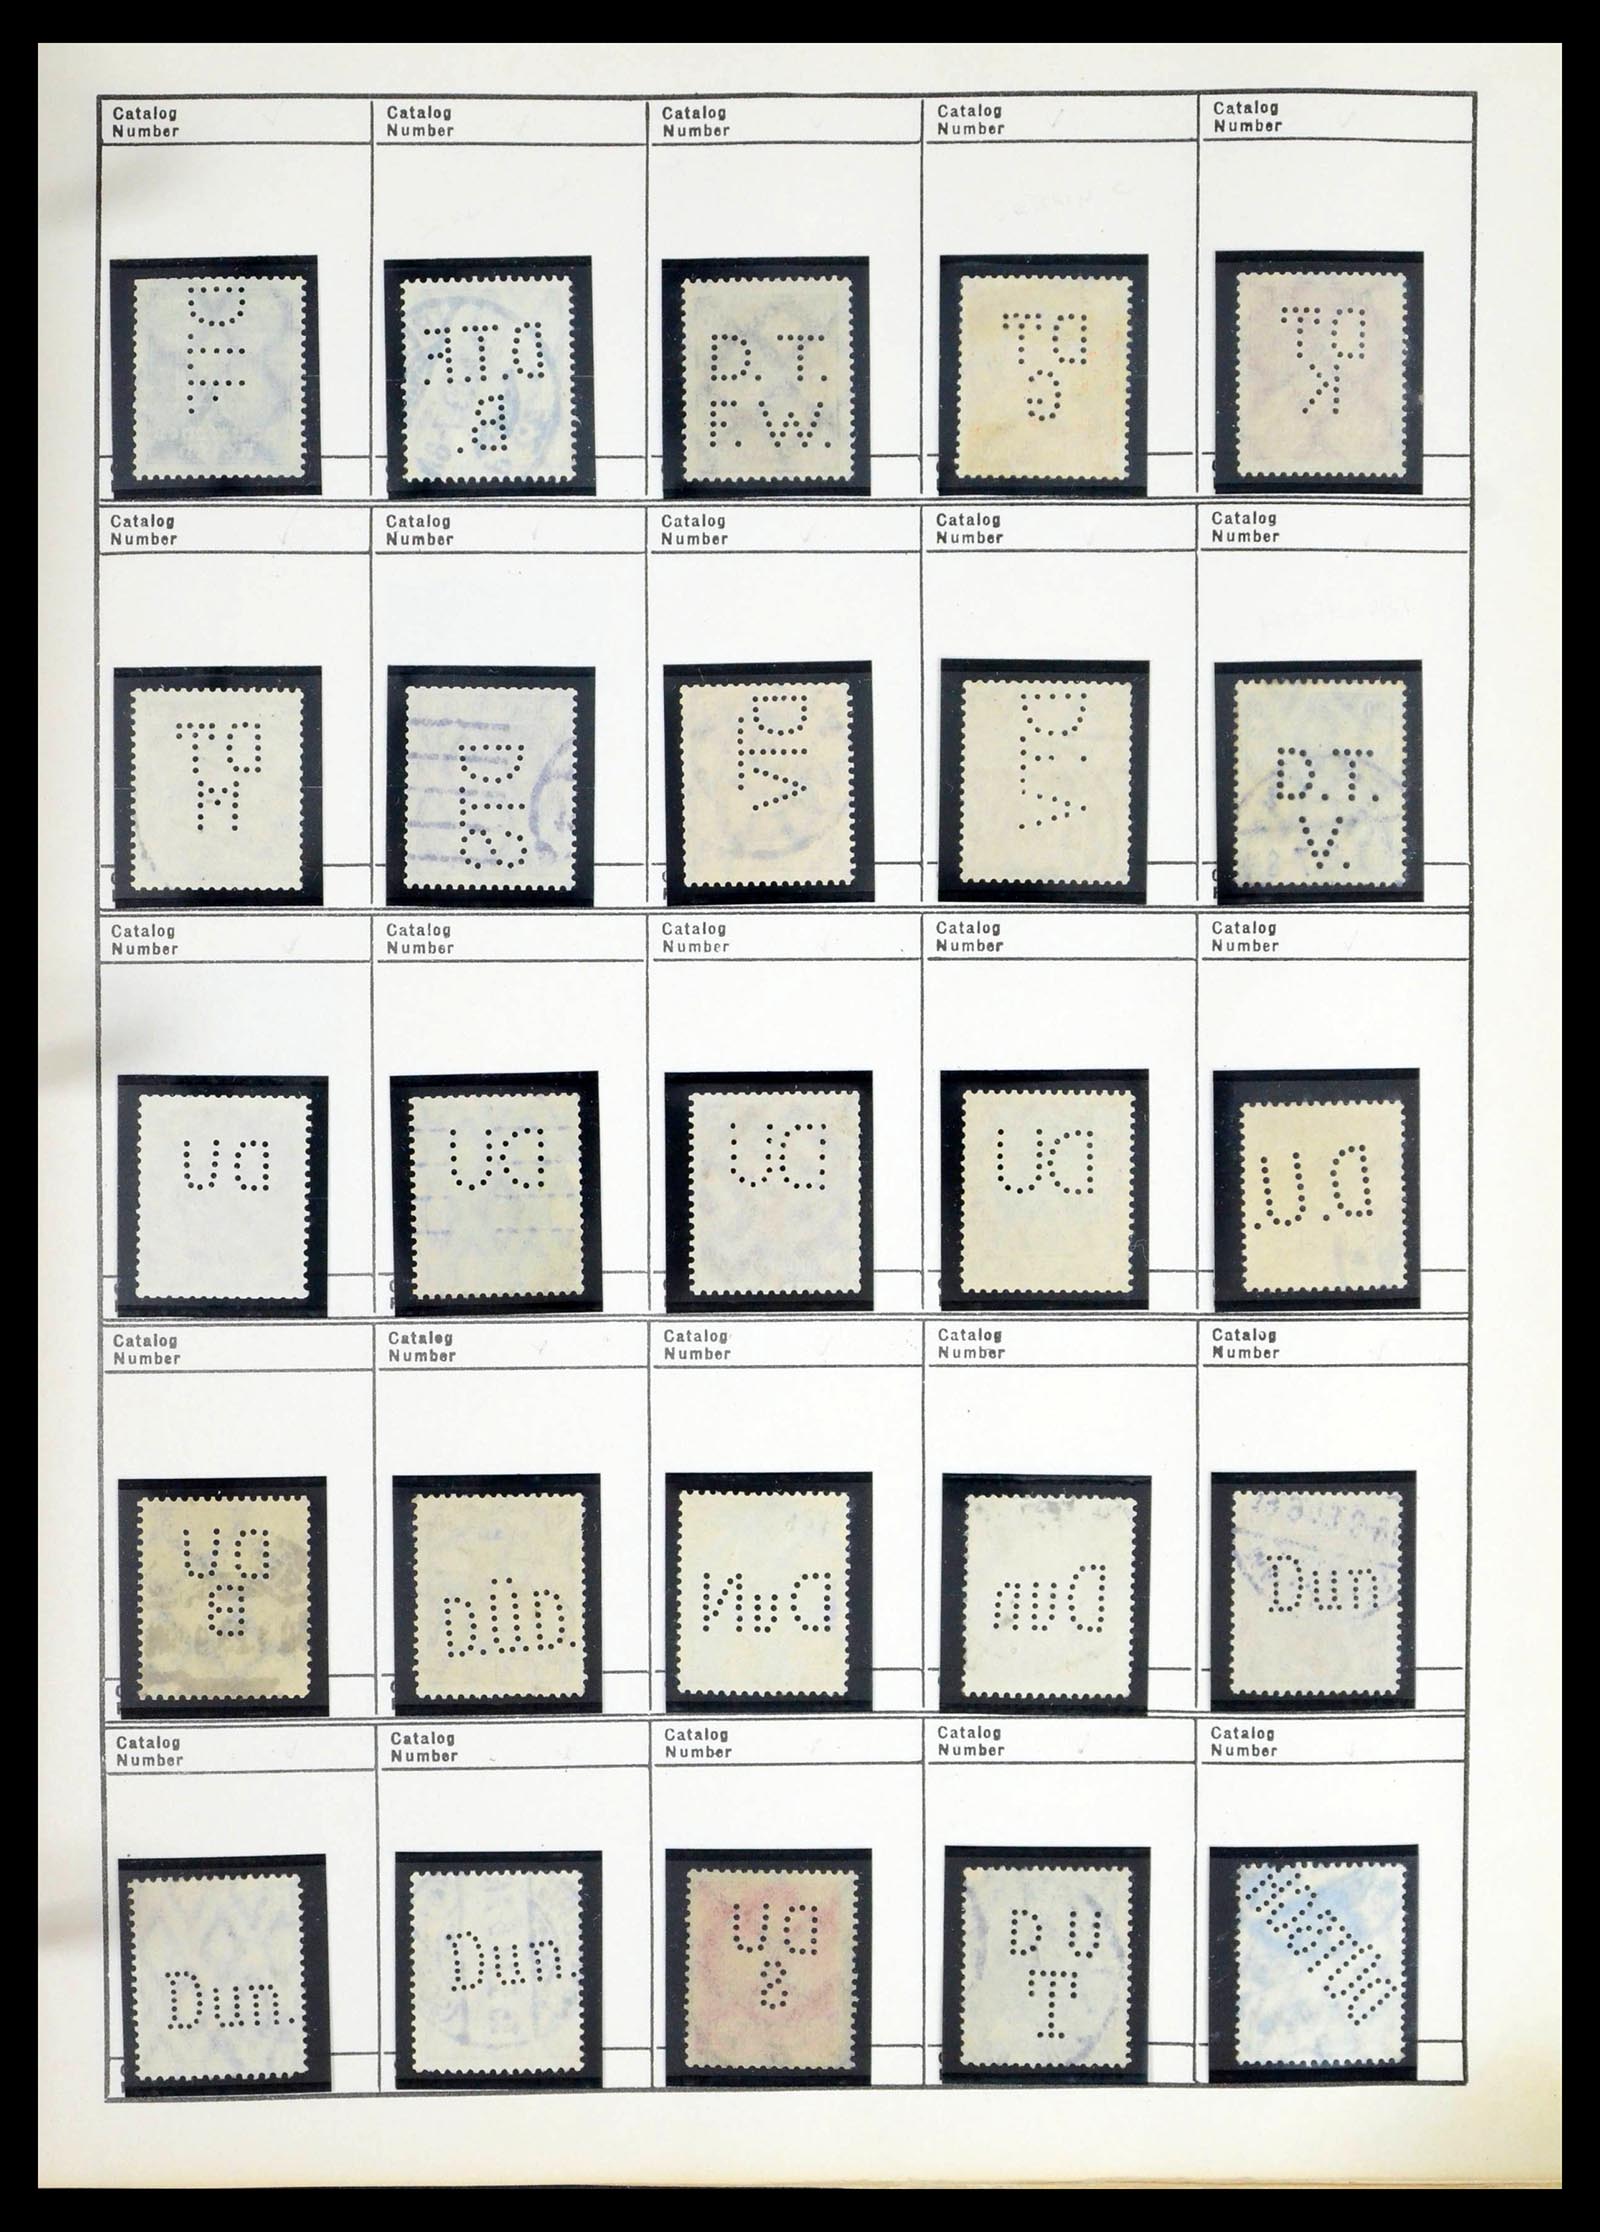 Catalog Number
Catalog Number
Catalog Number
Catalog Number
Catalog Number
D.T.
F.W.
DT
G
DT
K
Catalog Number
Catalog Number
Catalog Number
Catalog Number
Catalog Number
DT
M
DTG
DTV
DTV
D.T.
V.
Catalog Number
Catalog Number
Catalog Number
Catalog Number
Catalog Number
DU
DU
DU
DU
D.U.
Catalog Number
Catalog Number
Catalog Number
Catalog Number
Catalog Number
DU
B
D.Ü.D.
DuN
Dun
Catalog Number
Catalog Number
Catalog Number
Catalog Number
Catalog Number
Dun.
Dun.
DU
8
DU
T